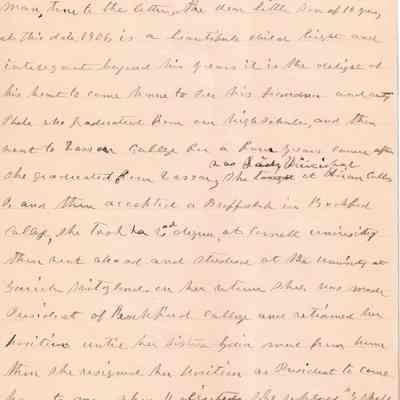 man, true to the letter, the dear little son of 10 years
at this date 1906 is a beautiful child bright and
intelegent beyond his years it is the delight of
his heart to come home to see his Grandma and
who graduated from our high schule, and then
went to Vassar College for a four years course after
was Lady Principal
she graduated from Vassar, she taught at Hiram Colle
g and then accepted a in Rockford
College, she took her 2nd degree, at Cornell university
then went abroad and studied at the University at
Zurich Switzerland on her return she was made
President of Rockford College and retained her
position until her sister went from home
then she resigned her position as President to come